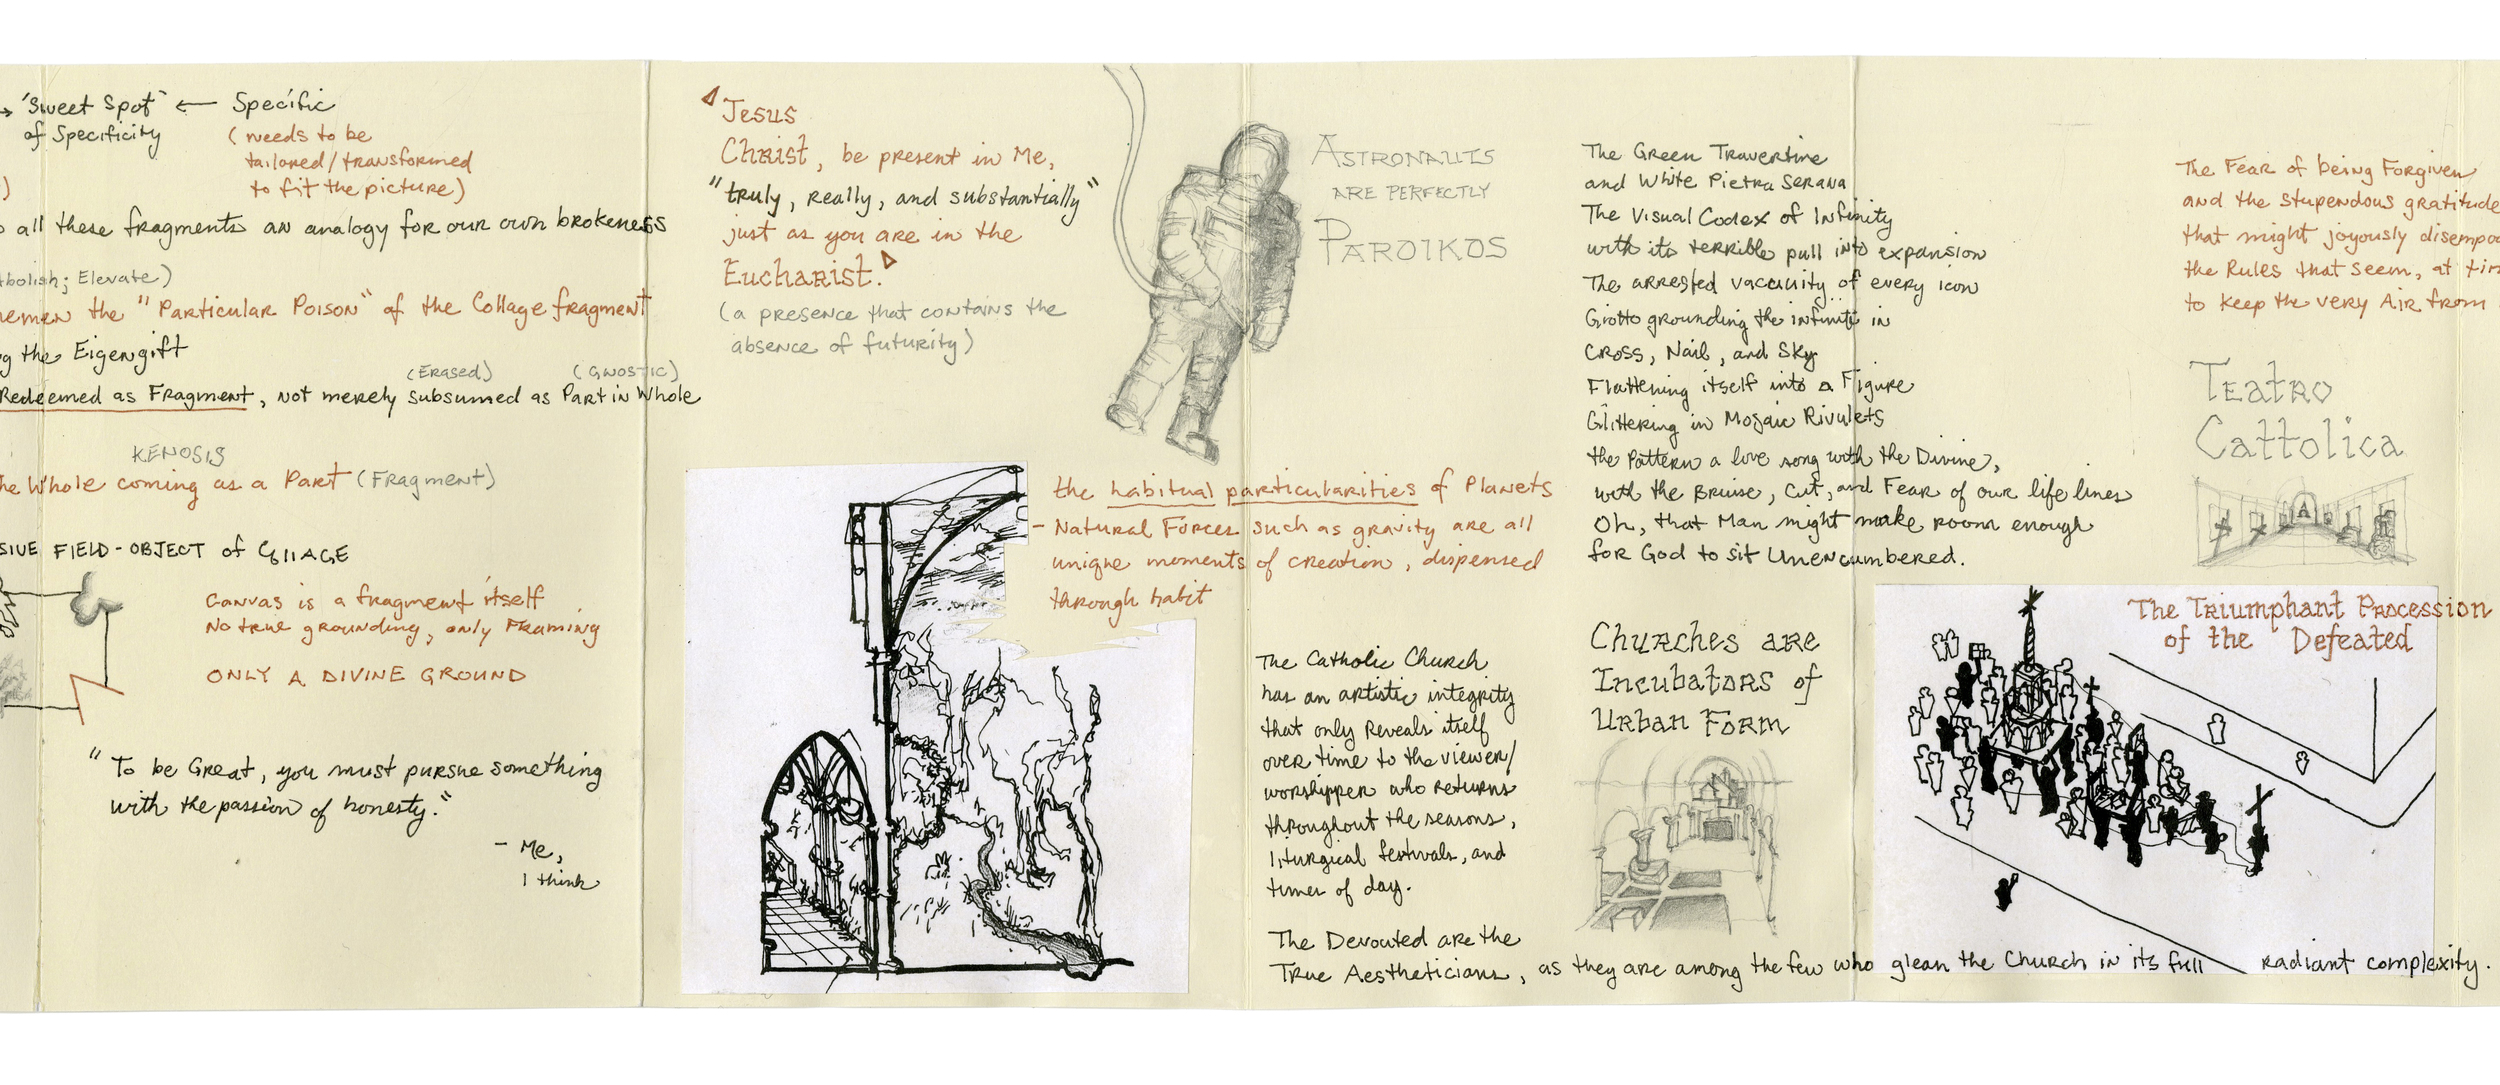 'Sweet Spot' ← Specific
of Specificity
(needs to be
tailored/transformed
to fit the picture)
)
all these fragments an analogy for our own brokeness
; Elevate)
the "Particular Poison" of the Collage fragment
the Eigengift
(Erased) (Gnostic)
Redeemed as Fragment, not merely subsumed as Part in Whole
KENOSIS
Whole coming as a Part (Fragment)
FIELD-OBJECT of COLLAGE
Canvas is a fragment itself
No true grounding, only Framing
ONLY A DIVINE GROUND
"To be Great, you must pursue something
with the passion of honesty."
- Me,
I think
Jesus
Christ, be present in Me,
"truly, really, and substantially"
just as you are in the
Eucharist.
(a presence that contains the
absence of futurity)
ASTRONAUTS
ARE PERFECTLY
PAROIKOS
the habitual particularities of Planets
- Natural Forces such as gravity are all
unique moments of creation, dispensed
through habit
The Catholic Church
has an artistic integrity
that only Reveals itself
over time to the viewer/
worshipper who returns
throughout the seasons,
liturgical festivals, and
times of day.
The Devouted are the
True Aestheticians, as they are among the few who glean the Church in its full radiant complexity.
The Green Travertine
and White Pietra Serana
The Visual Codex of Infinity
with its terrible pull into expansion
The arrested vacuity of every icon
Giotto grounding the infinite in
Cross, Nail, and Sky
Flattening itself into a Figure
Glittering in Mosaic Rivulets
the Pattern a love song with the Divine,
with the Bruise, Cut, and Fear of our life lines
Oh, that Man might make room enough
for God to sit Unencumbered.
Churches are
Incubators of
Urban Form
The Fear of being Forgiven
and the stupendous gratitude
that might joyously
the Rules that seem, at
to keep the very Air from
Teatro
Cattolica
The Triumphant Procession
of the Defeated